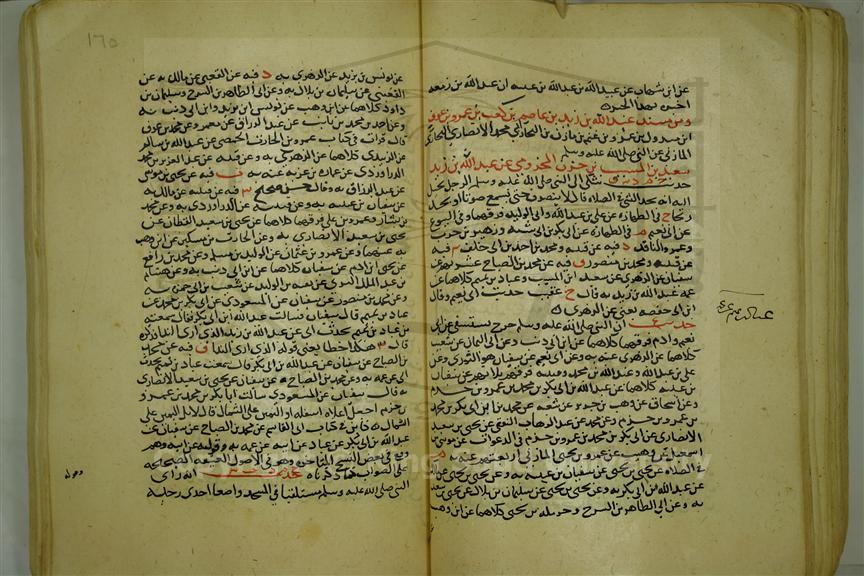 عن ابن شهاب عن عبيد الله بن عبد الله بن عتبه ان عبد الله بن زمعه
اخبره بهذا الخبر
ومن مسند عبد الله بن زيد بن عاصم بن كعب بن عمرو بن عوف
ابن مبذول بن عمرو بن غنم بن مازن بن النجار ابي محمد الانصاري النجاري
المازني عن النبي صلى الله عليه وسلم
سعيد بن المسيب بن حزن المخزومي عن عبد الله بن زيد
حديث خ م د س ق شكي الى النبي صلى الله عليه وسلم الرجل يخيل
اليه انه يجد الشي في الصلاة قال لا ينصرف حتى يسمع صوتا او يجد
ريحا خ في الطهارة عن علي بن عبد الله وابي الوليد فرقهما وفي البيوع
عن ابي نعيم م في الطهارة عن ابي بكر بن ابي شيبه وزهير بن حرب
وعمرو الناقد د فيه عن قتيبه ومحمد بن احمد بن ابي خلف س فيه
عن قتيبه ومحمد بن منصور ق فيه عن محمد بن الصباح عشرتهم عن
سفيان عن الزهري عن سعيد بن المسيب وعباد بن تميم كلاهما عن
عمه عبد الله بن زيد به قال خ عقيب حديث ابي نعيم وقال
ابن ابي حفصه يعني عن الزهري
حديث ع ان النبي صلى الله عليه وسلم خرج يستسقي خ عن ابي
نعيم وادم فرقهما كلاهما عن ابن ابي ذئب وعن ابي اليمان عن شعيب
كلاهما عن الزهري عنه به وعن ابي نعيم عن سفيان هو الثوري وعن
علي بن عبد الله وعبد الله بن محمد وقتيبه فرقهم ثلاثتهم عن سفيان
بن عيينه كلاهما عن عبد الله بن ابي بكر بن محمد بن عمرو بن حزم
وعن اسحاق عن وهب بن جرير عن شعبه عن محمد بن ابي بكر بن محمد
بن عمرو بن حزم وعن محمد عن عبد الوهاب الثقفي عن يحيى بن سعيد
الانصاري عن ابي بكر بن محمد بن عمرو بن حزم وفي الدعوات عن موسى بن
اسمعيل عن وهيب عن عمرو بن يحيى المازني اربعتهم عنه به م
في الصلاه عن يحيى بن يحيى عن سفيان بن عيينه به وعن يحيى بن يحيى عن مالك
عن عبد الله بن ابي بكر به وعن يحيى بن يحيى عن سليمان بن بلال عن يحيى بن سعيد
به وعن ابي الطاهر بن السرح وحرمله بن يحيى كلاهما عن ابن وهب
١٦٥
عن يونس بن يزيد عن الزهري به د فيه عن القعنبي عن مالك به عن
القعنبي عن سليمان بن بلال به وعن ابي الطاهر بن السرح وسليمان بن
داود كلاهما عن ابن وهب عن يونس بن يزيد وابن ابي ذئب به
وعن احمد بن محمد بن ثابت عن عبد الرزاق عن معمر وعن محمد بن عوف
قال قرات في كتاب عمرو بن الحارث الحمصي عن عبد الله بن سالم
عن الزبيدي كلاهما عن الزهري به وعن قتيبه عن عبد العزيز بن محمد
الدراوردي عن عماره بن غزيه عنه به ت فيه عن يحيى بن موسى
عن عبد الرزاق به وقال حسن صحيح س فيه عن قتيبه عن مالك به
بن بشار وعمرو بن علي فرقهما كلاهما عن يحيى بن سعيد القطان عن
يحيى بن سعيد الانصاري به وعن الحارث بن مسكين عن ابن وهب
به عنهما وعن عمرو بن عثمان عن الوليد بن مسلم وعن محمد بن رافع
عن يحيى بن ادم عن سفيان كلاهما عن ابن ابي ذئب به وعن هشام
بن عبد الملك عن بقيه بن الوليد عن شعيب بن ابي حمزه به
وعن محمد بن منصور عن سفيان عن المسعودي عن ابي بكر بن محمد عن
عباد بن تميم قال سفيان فسالت عبد الله بن ابي بكر فقال سمعته
من عباد بن تميم يحدث ابي عن عبد الله بن زيد الذي اري النداء فذكره
قال س هكذا خطا يعني قوله الذي اري النداء ق فيه عن محمد
بن الصباح عن سفيان عن عبد الله بن ابي بكر قال سمعت عباد بن تميم يحدث
ابي عن عمه به وعن محمد بن الصباح عن سفيان عن يحيى بن سعيد الانصاري
به قال سفيان عن المسعودي سالت ابا بكر بن محمد بن عمرو
بن حزم اجعل اعلاه اسفله او اليمين على الشمال قال لا بل اليمين على
الشمال
عبد الله بن ابي بكر عن عباد عن ابيه عن عمه به وقوله عن ابيه وهم
وقع في بعض النسخ المتاخره وهو في الاصول العتيقه الصحيحه
على الصواب كما ذكرناه حديث خ م د ت س انه راى
النبي صلى الله عليه وسلم مستلقيا في المسجد واضعا احدى رجليه